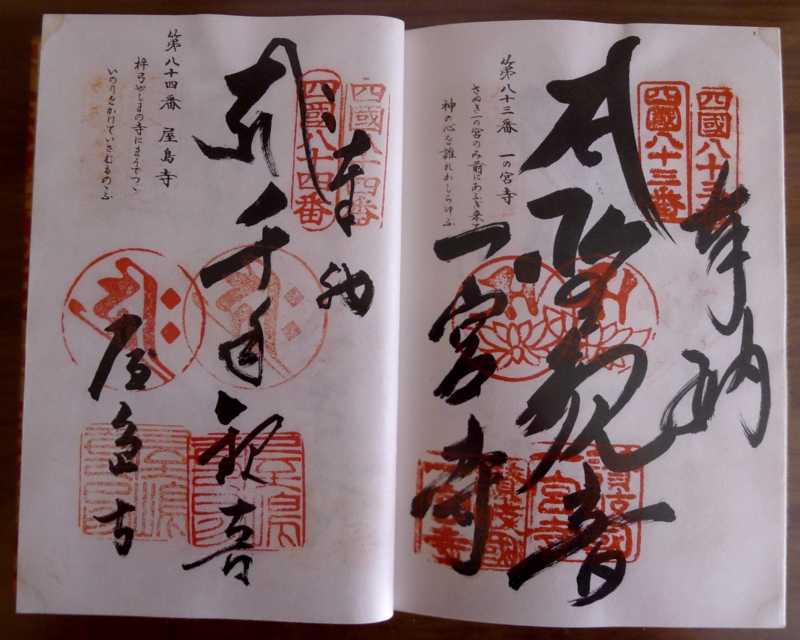 四國八十三番
奉納
四國八十三番
聖観音
讃岐國
一宮寺
一宮寺
第八十三番 一の宮寺
さぬき一の宮のみ前にあふぎ来て
神の心を誰れかしらゆふ
四國八十四番
奉納
四國八十四番
千手観音
屋島寺
第八十四番 屋島寺
梓弓やしまの寺にまうでつゝ
いのりをかけていさむものゝふ